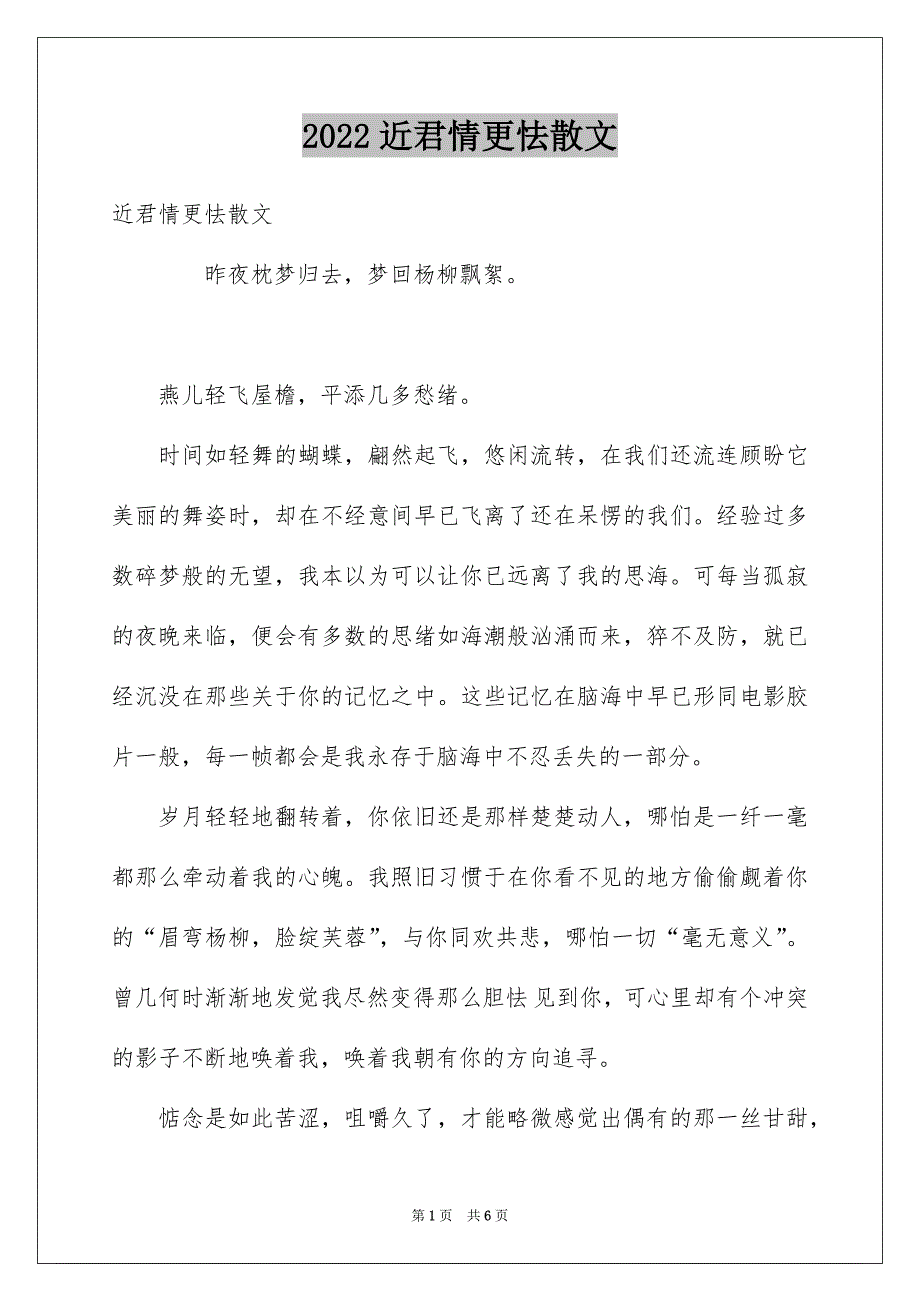 2022近君情更怯散文
近君情更怯散文
昨夜枕梦归去，梦回杨柳飘絮。
燕儿轻飞屋檐，平添几多愁绪。
时间如轻舞的蝴蝶，翩然起飞，悠闲流转，在我们还流连顾盼它
美丽的舞姿时，却在不经意间早已飞离了还在呆愣的我们。经验过多
数碎梦般的无望，我本以为可以让你已远离了我的思海。可每当孤寂
的夜晚来临，便会有多数的思绪如海潮般汹涌而来，猝不及防，就已
经沉没在那些关于你的记忆之中。这些记忆在脑海中早已形同电影胶
片一般，每一帧都会是我永存于脑海中不忍丢失的一部分。
岁月轻轻地翻转着，你依旧还是那样楚楚动人，哪怕是一纤一毫
都那么牵动着我的心魄。我照旧习惯于在你看不见的地方偷偷觑着你
的“眉弯杨柳，脸绽芙蓉”，与你同欢共悲，哪怕一切“毫无意义”。
曾几何时渐渐地发觉我尽然变得那么胆怯 见到你，可心里却有个冲突
的影子不断地唤着我，唤着我朝有你的方向追寻。
惦念是如此苦涩，咀嚼久了，才能略微感觉出偶有的那一丝甘甜，
第1页 共6页